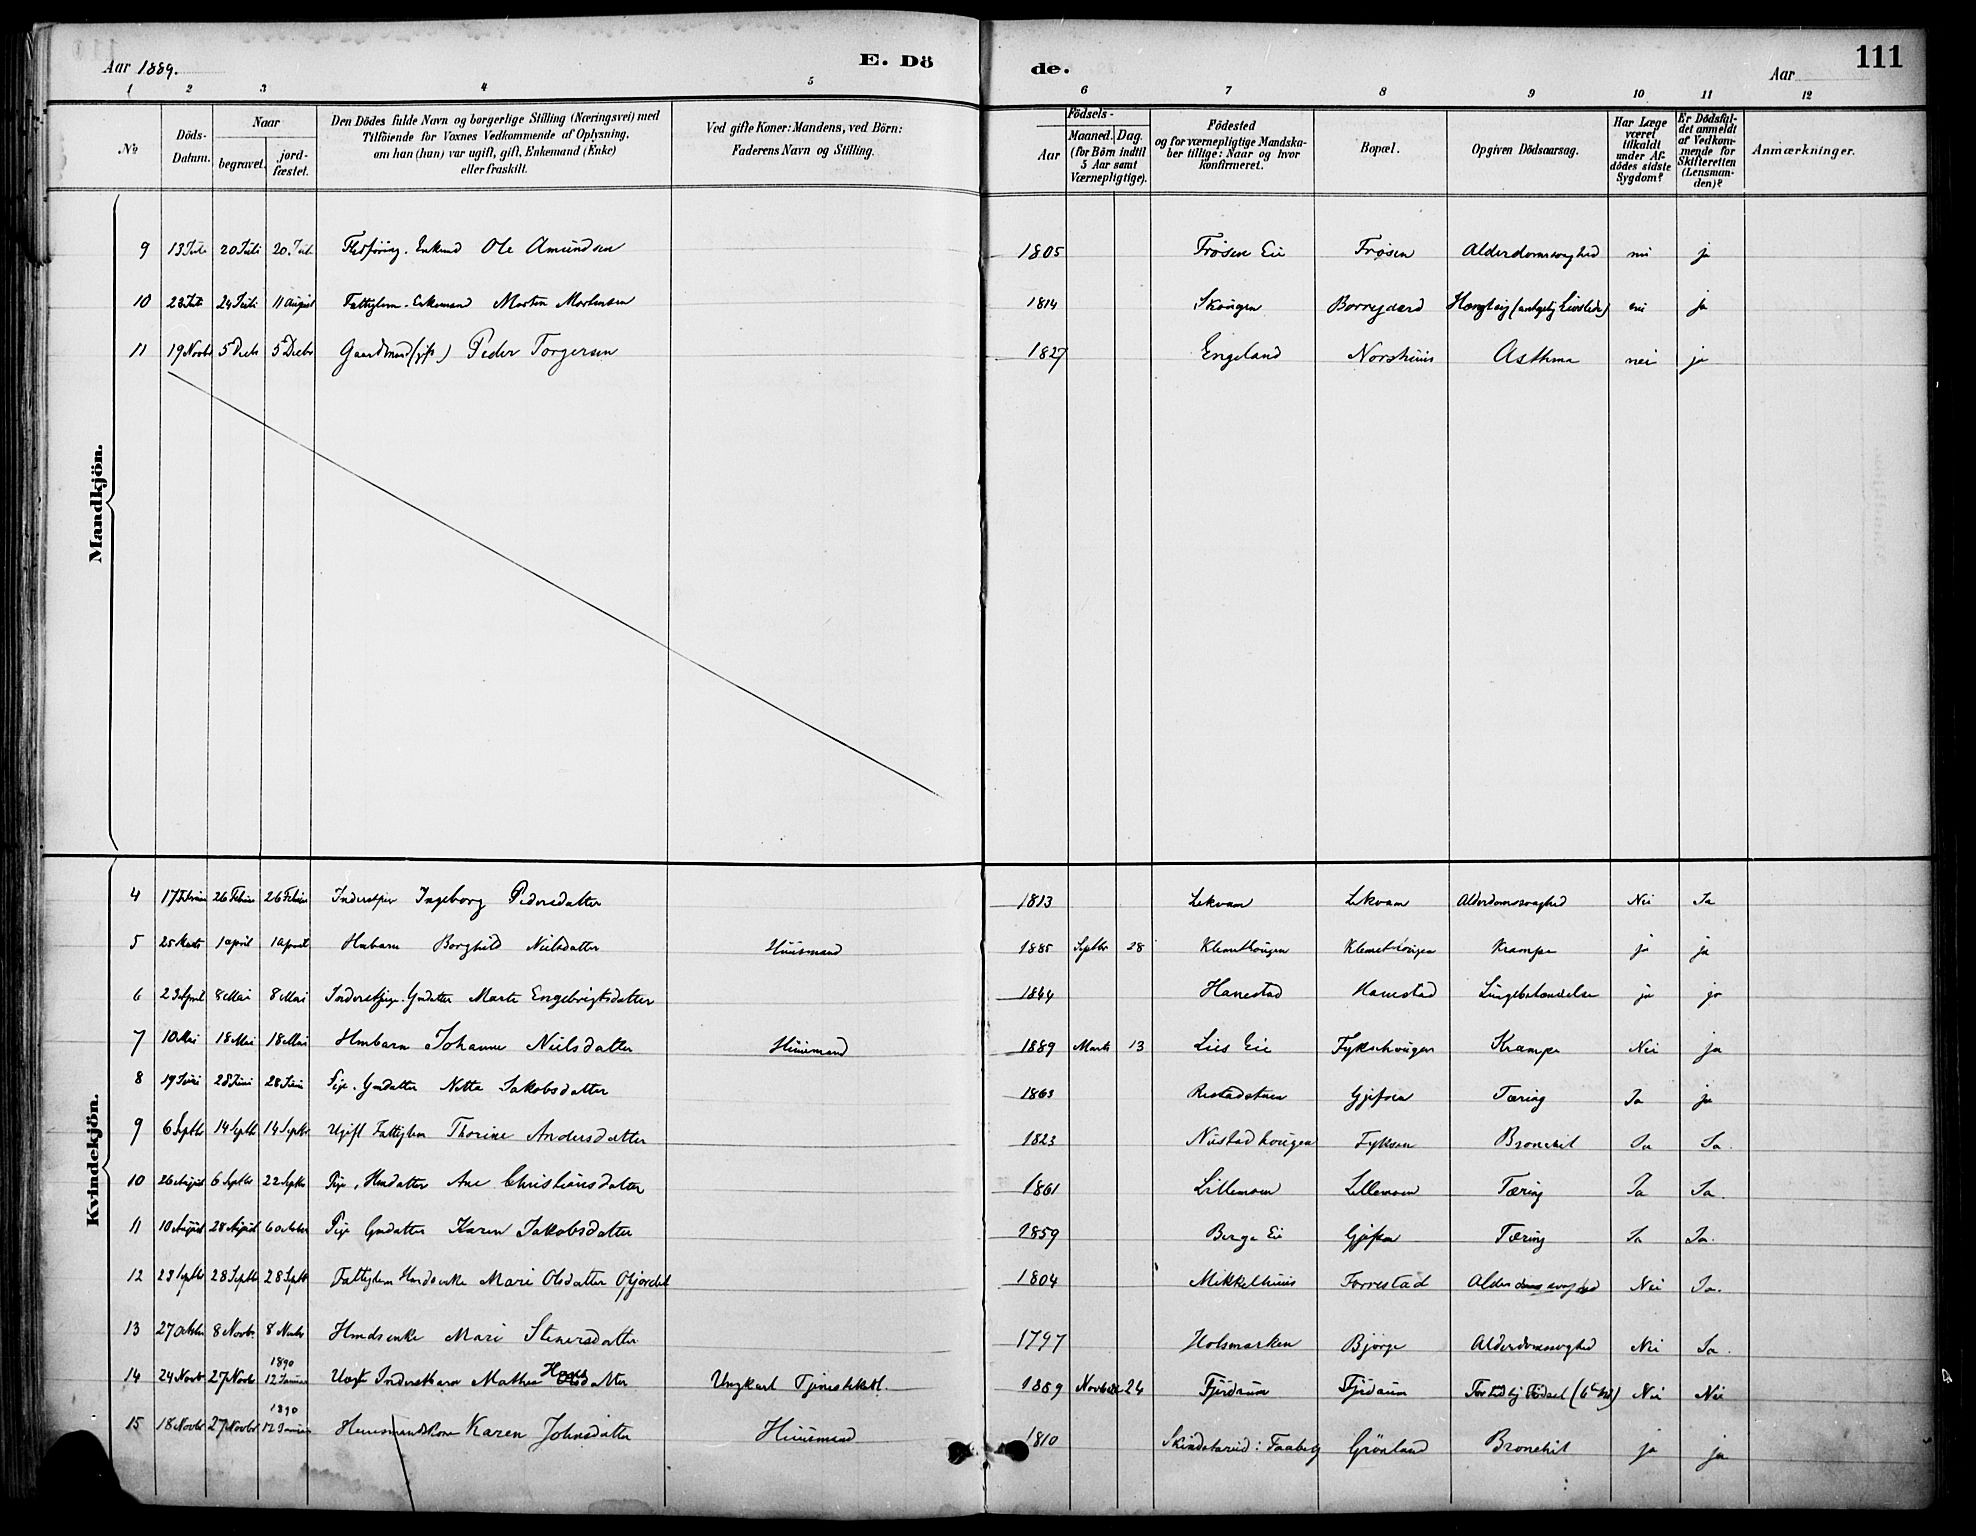 Aar 1889.
E. Dö
de.
Aar
111
1 2 3 4 5 6 7 8 9 10 11 12
No
Döds-Datum.
Naar
begravet.
jord-fæstet.
Den Dödes fulde Navn og borgerlige Stilling (Næringsvei) med
Tilföiende for Voxnes Vedkommende af Oplysning,
om han (hun) var ugift, gift, Enkemand (Enke)
eller fraskilt.
Ved gifte Koner: Mandens, ved Börn:
Faderens Navn og Stilling.
Födsels-
Aar
Maaned. Dag.
(for Börn indtil
5 Aar samt
Værnepligtige).
Födested
og for værnepligtige Mandska-
ber tillige: Naar og hvor
konfirmeret.
Bopæl.
Opgiven Dödsaarsag.
Har Læge
været
tilkaldt
under Af-
dödes sidste
Sygdom?
Er Dödsfal-
det anmeldt
af Vedkom-
mende for
Skifteretten
(Lensman-
den)?
Anmærkninger.
Mandkjön.
9 13 Juli 20 Juli 20. Juli Ole Amundsen 1805 Frøsen Eie Frøsen Alderdomssvaghed nei ja
10 23 Juli 24 Juli 11 August Fattiglem. Enkemand Morten Mortensen 1814 Skougen Borregaard nei ja
11 19 Novbr 5 Decbr 5 Decbr Gaardmand (gift) Peder Torgersen 1827 Engeland Norshuus Asthma nei ja
Kvindekjön.
4 17 Februar 26 Februar 26 Februar Ingeborg Pedersdatter 1813 Lekvam Lekvam Alderdomssvaghed Nei Ja
5 25 Marts 1 april 1 april Hmbarn Borghild Nielsdatter Huusmand 1885 Septbr 28 Klemethougen Klemethougen Krampe ja ja
6 23 April 8 Mai 8 Mai Marte Engebrigtsdatter 1844 Hanestad Hanestad Lungebetændelse ja ja
7 10 Mai 18 Mai 18 Mai Hmbarn Johanne Nielsdatter Huusmand 1889 Marts 13 Lies Eie Fykschougen Krampe Nei ja
8 19 Juni 28 Juni 28 Juni Pige. Gmdatter Netta Jakobsdatter 1863 Tæring Ja ja
9 6 Septbr 14 Septbr 14 Septbr Ugift Fattiglem Thorine Andersdatter 1823 Nustadhougen Fyksen Bronchit Ja Ja.
10 26 August 6 Septbr 22 Septbr Pige, Hmdatter Ane Christiansdatter 1861 Lillemoen Lillemoen Tæring Ja Ja.
11 10 August 28 August 6 October Pige Gmdatter Karen Jakobsdatter 1859 Berge Eie Tæring Ja Ja.
12 23 Septbr 28 Septbr 28 Septbr Fattiglem Mari Olsdatter 1804 Mikkelhuus Forrestad Alderdomssvaghed Nei Ja.
13 27 October 8 Novbr. 8 Novbr Hmdsenke Mari Stenersdatter 1797 Holsmarken Bjørge Alderdomssvaghed Nei Ja.
14 24 Novbr 27 Novbr 1890 12 Januar Mathea Ungkarl 1889 Novbr 24 Fjirdrum Fjirdrum Nei Nei
15 18 Novbr 27 Novbr 1890 12 Januar Huusmandskone Karen Johnsdatter Huusmand 1810 Grönland Bronchit ja ja